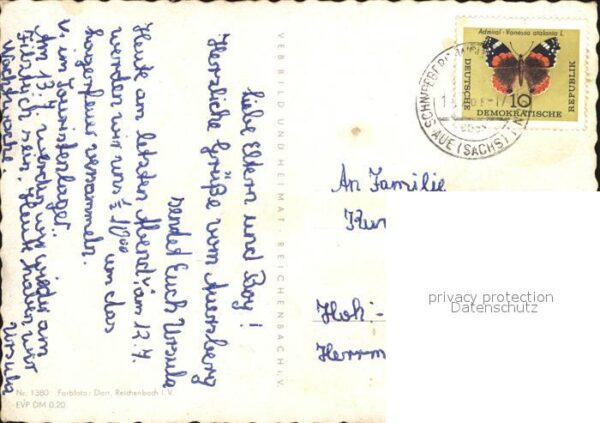 liebe Eltern und Boy!
Herrliche Grüße vom Auersberg
sendet Euch Ursula
Heute am letzten Abend, am 12.7.
werden wir uns ½ 10⁰⁰ um das
Lagerfeuer versammeln.
v. im Touristenlager.
Am 13.7. werden wir wieder am
sein. Heute haben wir
Nachtwache
Ursula
VEB BILD UND HEIMAT · REICHENBACH i. V.
Nr. 1380 Farbfoto: Darr, Reichenbach i. V.
EVP DM 0,20
Admiral · Vanessa atalanta L.
DEUTSCHE
10
DEMOKRATISCHE
REPUBLIK
AUE (SACHS)
An Familie
Kur
Hoh
Herrm
privacy protection
Datenschutz